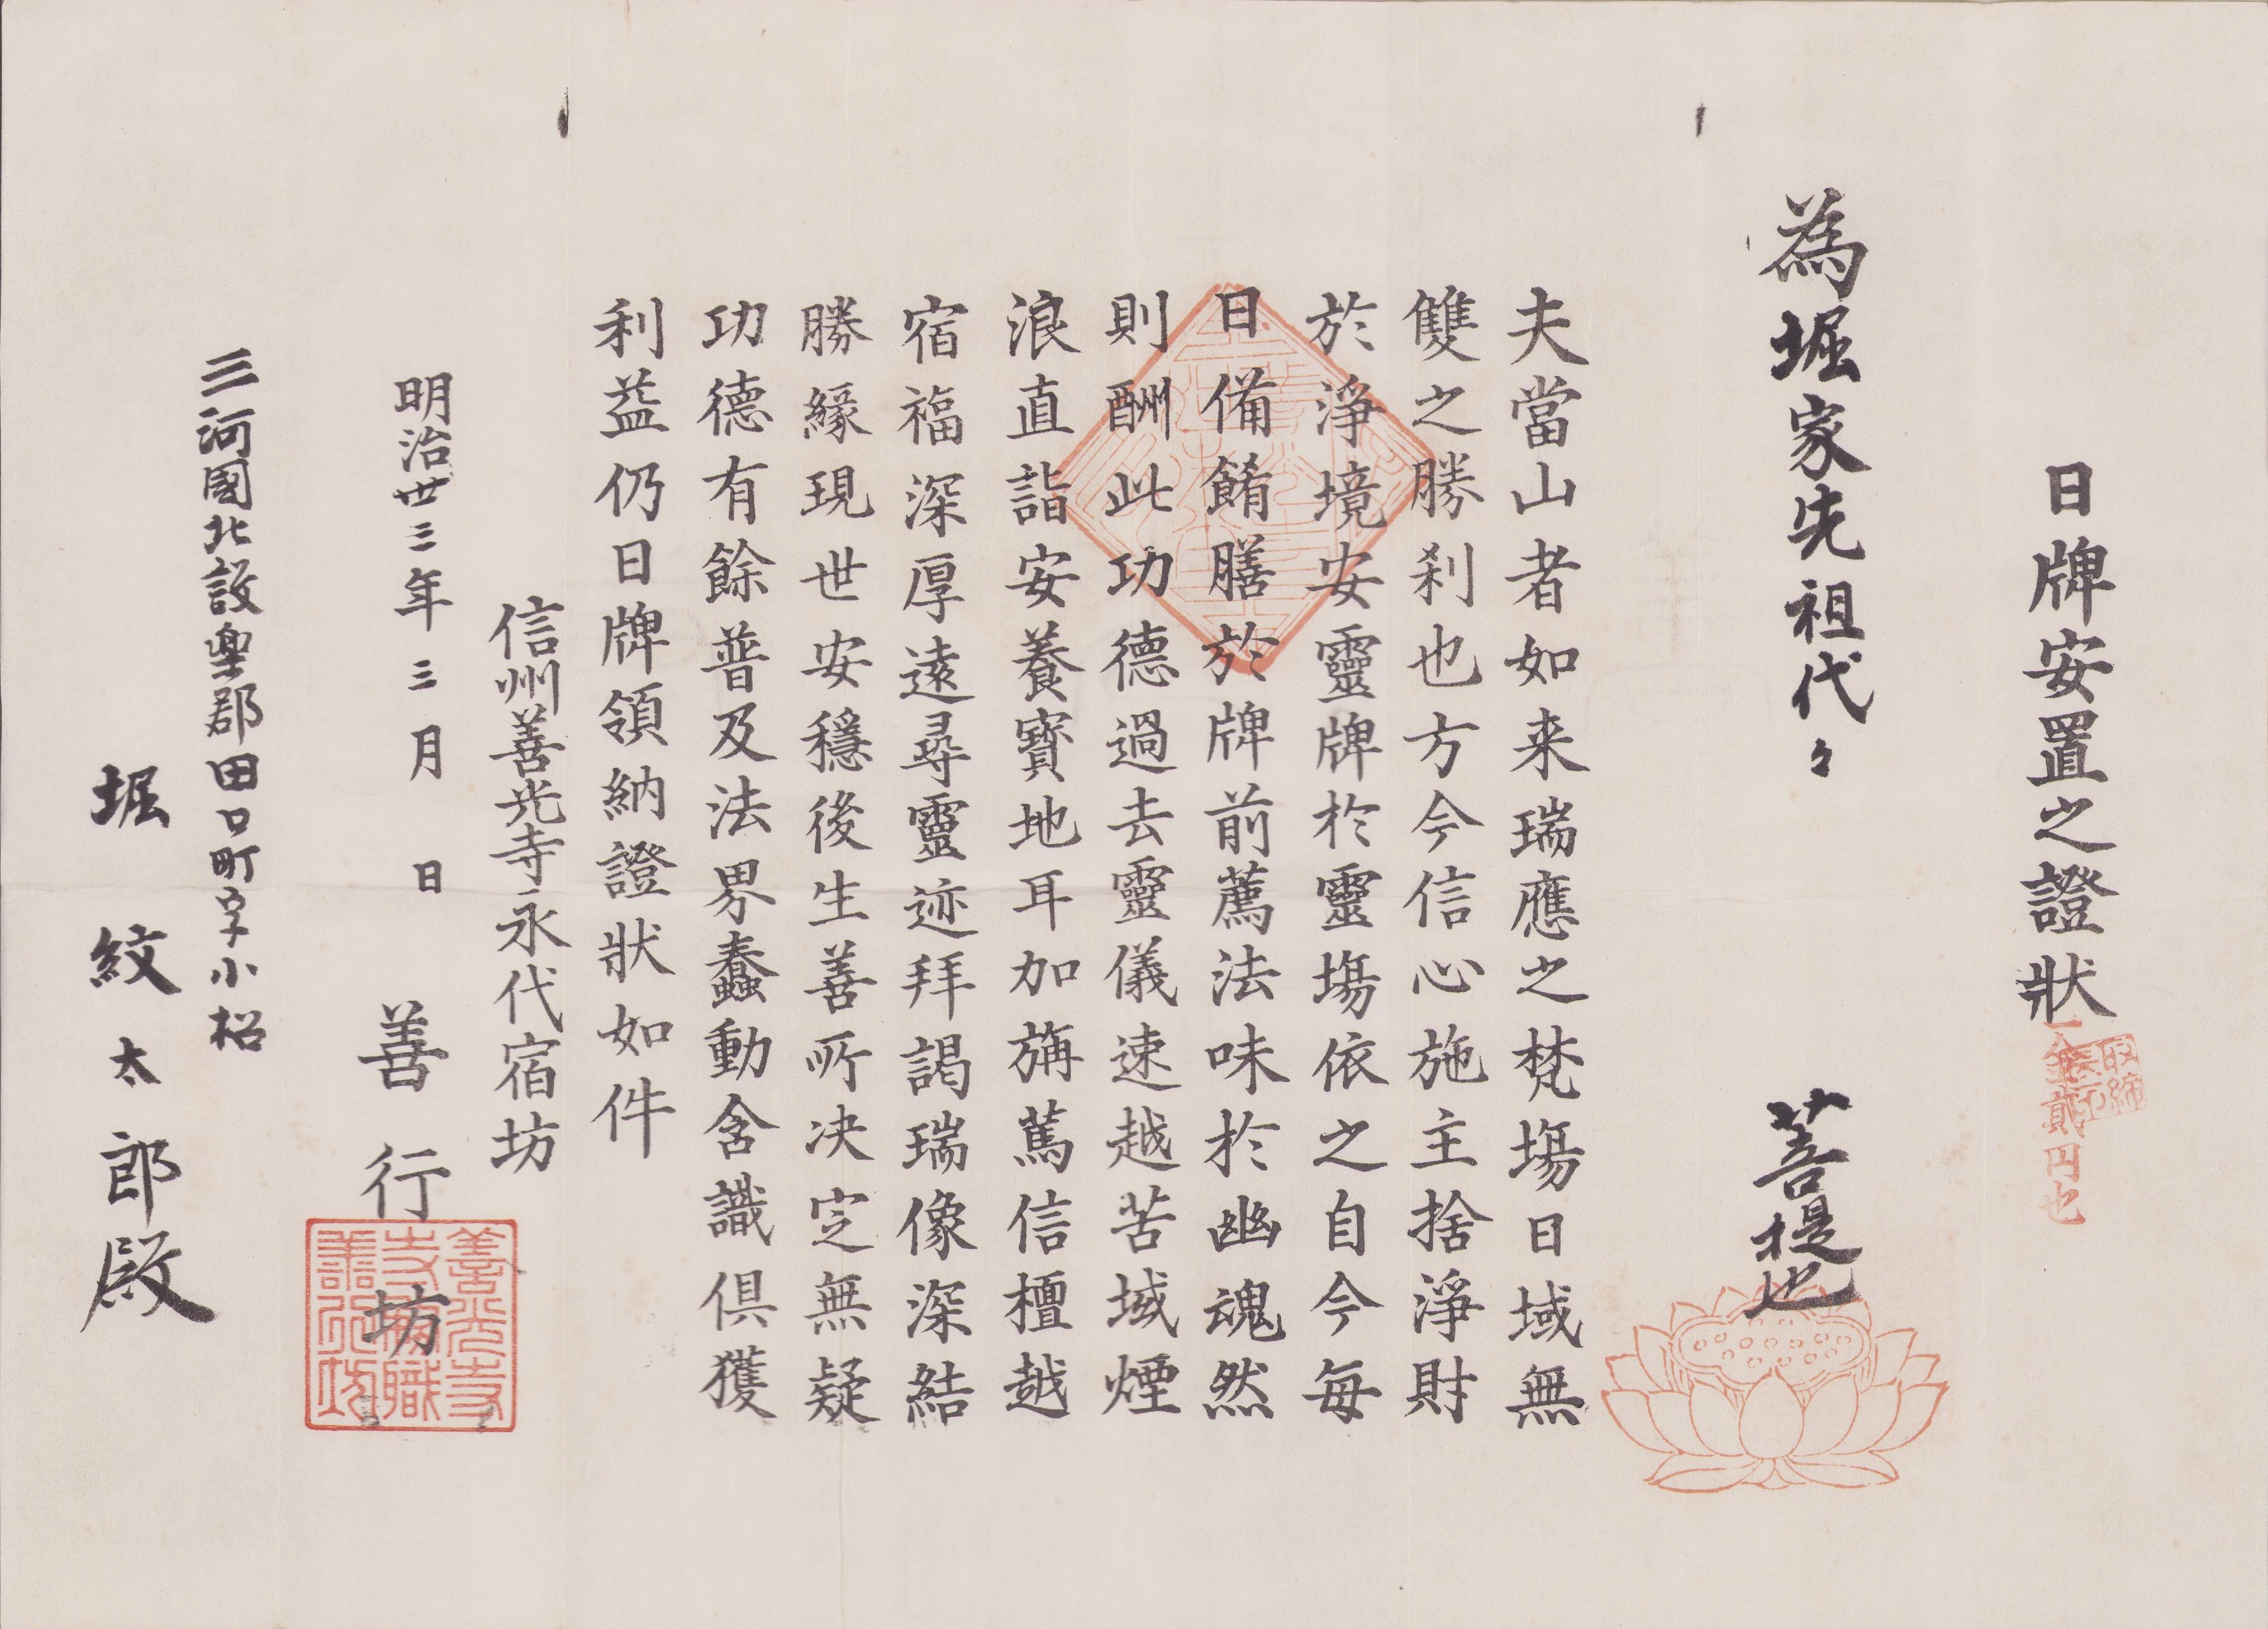 日牌安置之證狀
一金貳円也
取締
為堀家先祖代々 菩提也
夫當山者如来瑞應之梵塲日域無
雙之勝刹也方今信心施主捨淨財
於淨境安靈牌於靈塲依之自今每
日備餚膳於牌前薦法味於幽魂然
則酬此功德過去靈儀速越苦域煙
浪直詣安養寳地耳加旃篤信檀越
宿福深厚遠尋靈迹拜謁瑞像深結
勝緣現世安穩後生善所决定無疑
功德有餘普及法界蠢動含識俱獲
利益仍日牌領納證狀如件
信州善光寺永代宿坊
明治丗三年三月 日 善行坊
善光寺
寺職
善行坊
三河國北設樂郡田口町字小松
堀紋太郎殿